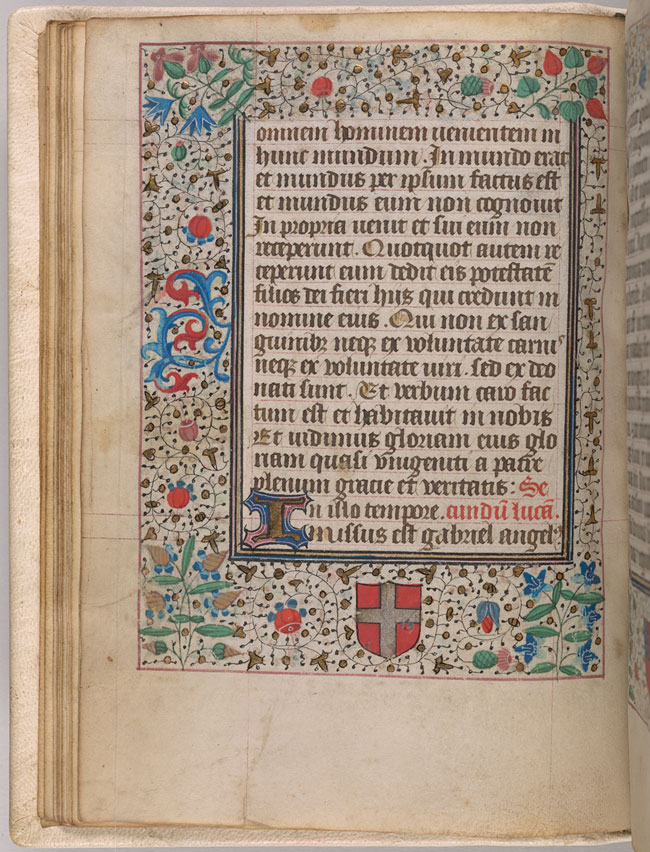 omnem hominem uenientem in
hunc mundum. In mundo erat
et mundus per ipsum factus est
et mundus eum non cognouit
In propria uenit et sui eum non
receperunt. Quotquot autem re
ceperunt eum dedit eis potestatē
filios dei fieri hijs qui credunt in
nomine eius. Qui non ex san
guinibꝫ neqꝫ ex voluntate carnis
neqꝫ ex voluntate uiri. sed ex deo
nati sunt. Et verbum caro fac
tum est et habitauit in nobis
Et uidimus gloriam eius glo
riam quasi vnigeniti a patre
plenum gratie et veritatis: Se
In illo tempore. cundū lucā.
missus est gabriel angelꝰ